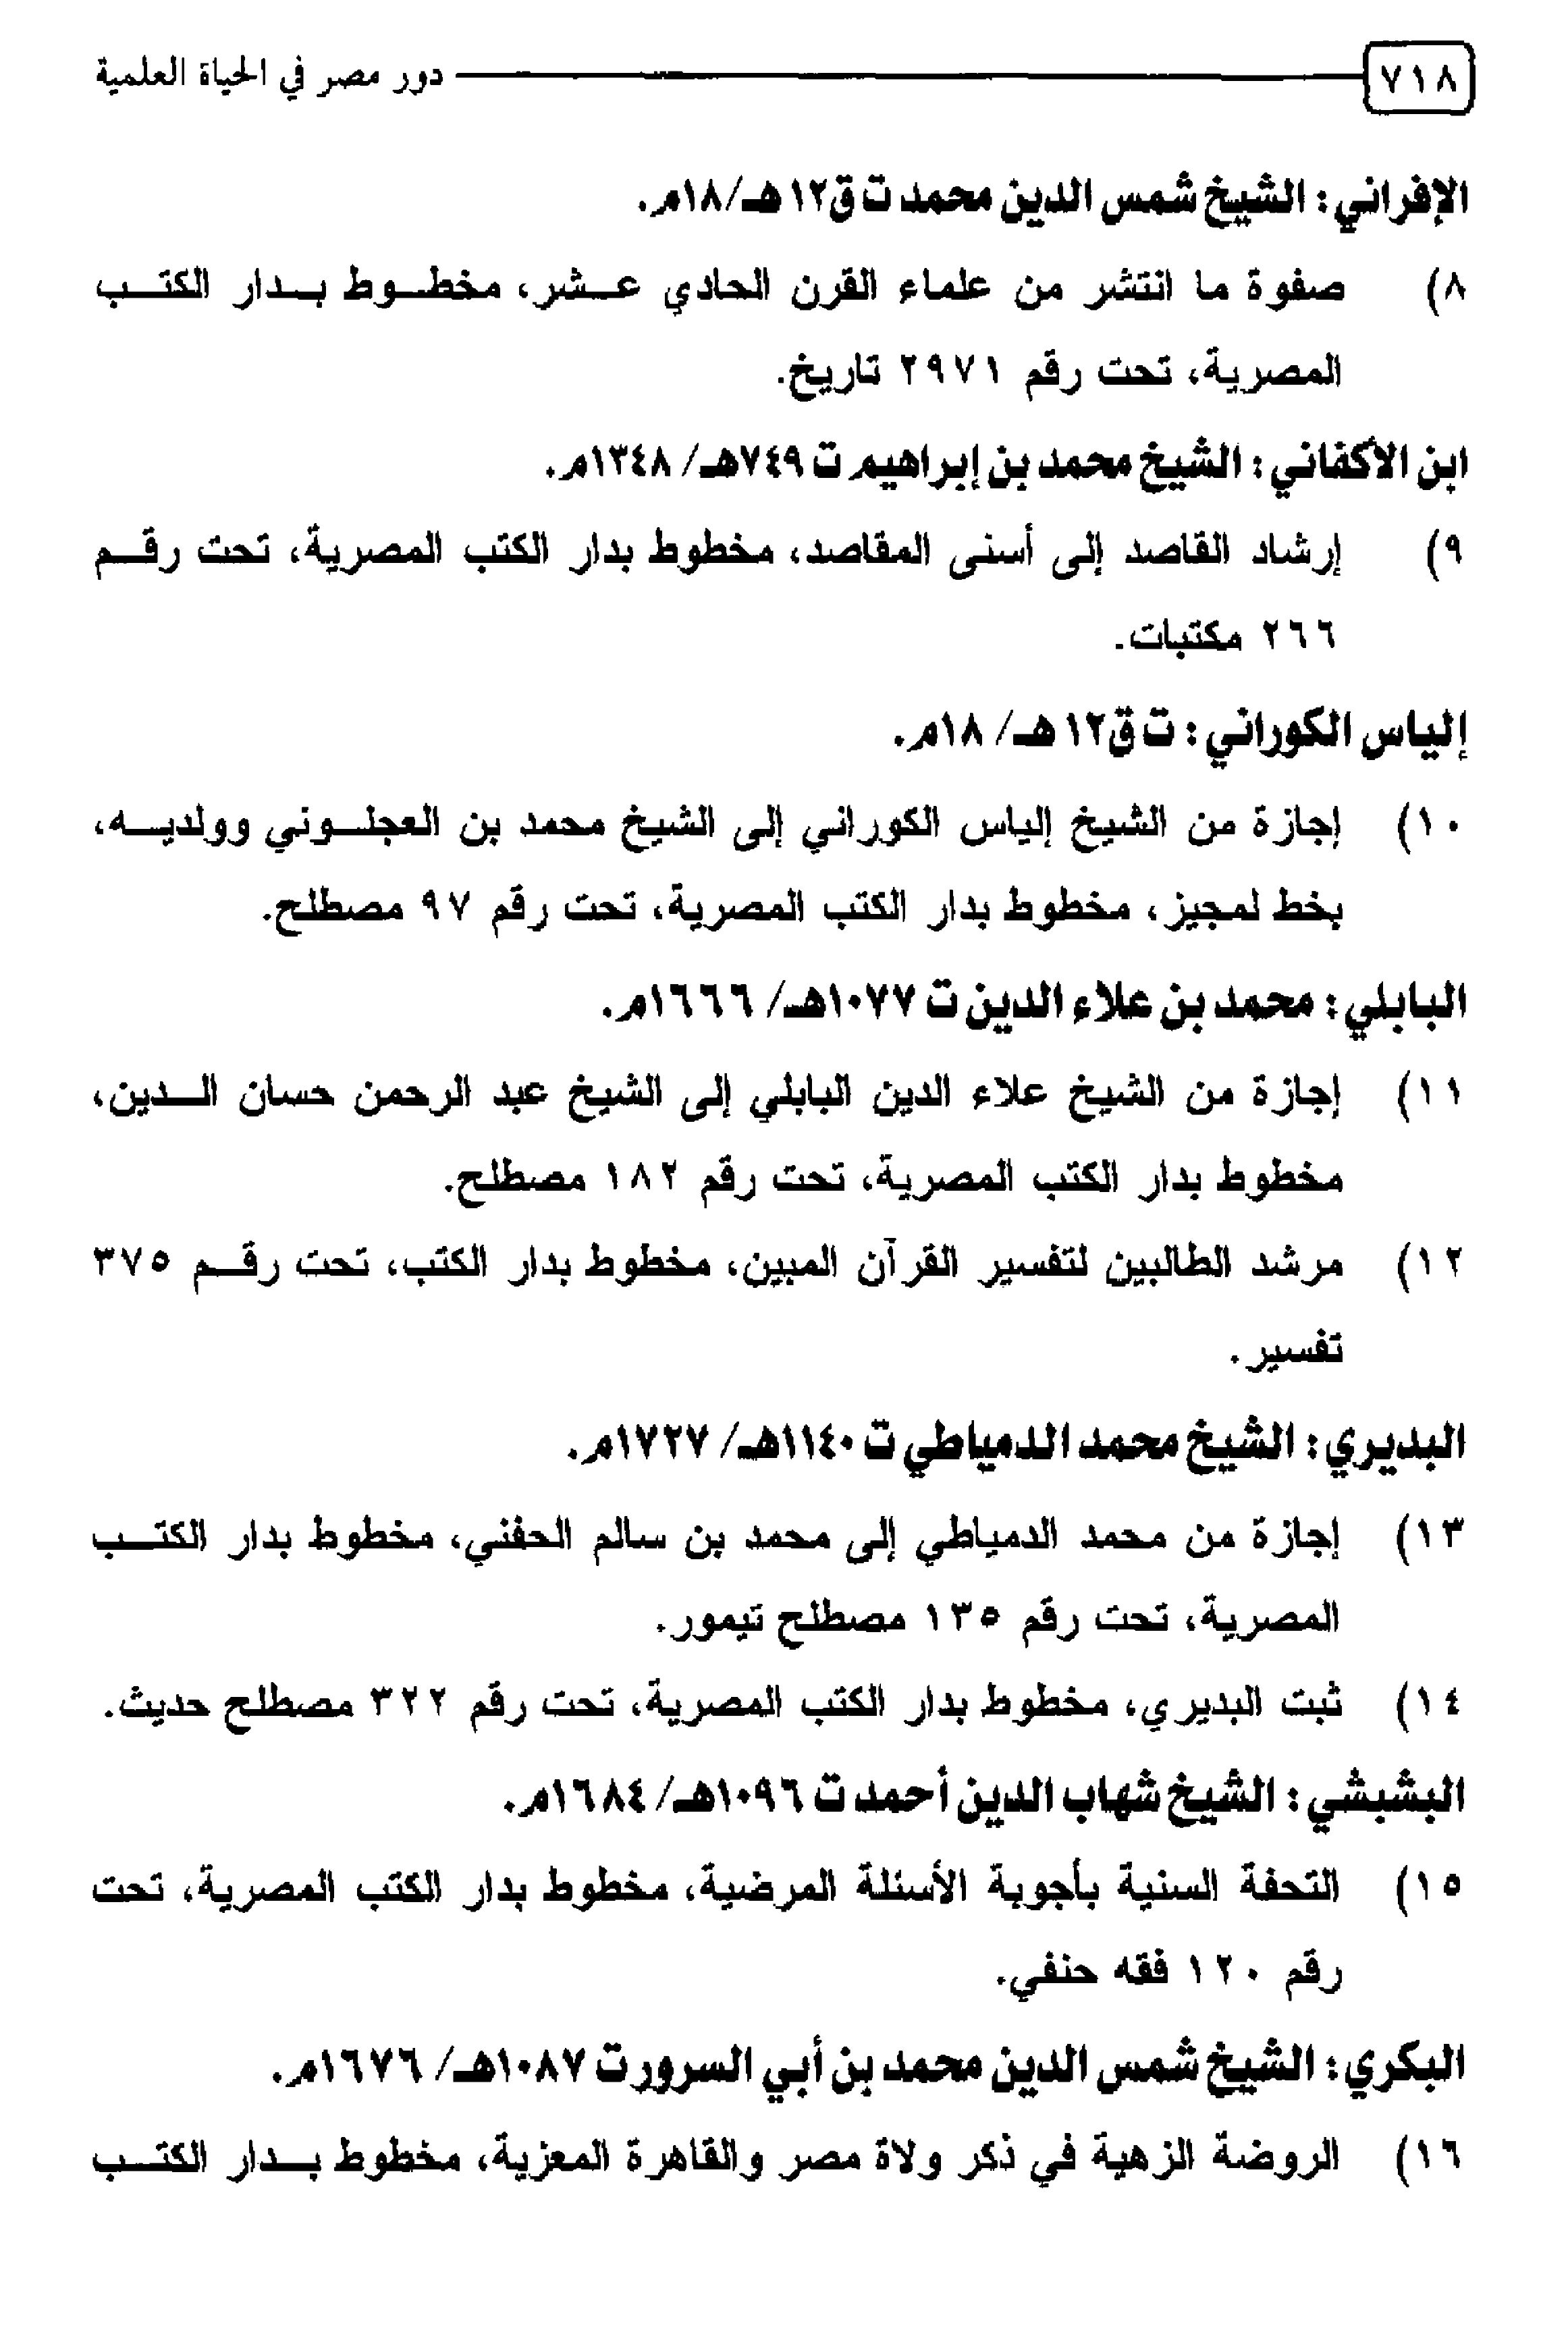 ٧١٨ دور مصر في الحياة العلمية
الإفراني: الشيخ شمس الدين محمد ت ق١٢ هـ/١٨م.
٨) صفوة ما انتشر من علماء القرن الحادي عشر، مخطوط بدار الكتب
المصرية، تحت رقم ٢٩٧١ تاريخ.
ابن الأكفاني: الشيخ محمد بن إبراهيم ت ٧٤٩هـ/ ١٣٤٨م.
٩) إرشاد القاصد إلى أسنى المقاصد، مخطوط بدار الكتب المصرية، تحت رقم
٢٦٦ مكتبات.
إلياس الكوراني: ت ق١٢ هـ/ ١٨م.
١٠) إجازة من الشيخ إلياس الكوراني إلى الشيخ محمد بن العجلوني وولديه،
بخط لمجيز، مخطوط بدار الكتب المصرية، تحت رقم ٩٧ مصطلح.
البابلي: محمد بن علاء الدين ت ١٠٧٧هـ/ ١٦٦٦م.
١١) إجازة من الشيخ علاء الدين البابلي إلى الشيخ عبد الرحمن حسان الدين،
مخطوط بدار الكتب المصرية، تحت رقم ١٨٢ مصطلح.
١٢) مرشد الطالبين لتفسير القرآن المبين، مخطوط بدار الكتب، تحت رقم ٣٧٥
تفسير.
البديري: الشيخ محمد الدمياطي ت ١١٤٠هـ/ ١٧٢٧م.
١٣) إجازة من محمد الدمياطي إلى محمد بن سالم الحفني، مخطوط بدار الكتب
المصرية، تحت رقم ١٣٥ مصطلح تيمور.
١٤) ثبت البديري، مخطوط بدار الكتب المصرية، تحت رقم ٣٢٢ مصطلح حديث.
البشبشي: الشيخ شهاب الدين أحمد ت ١٠٩٦هـ/ ١٦٨٤م.
١٥) التحفة السنية بأجوبة الأسئلة المرضية، مخطوط بدار الكتب المصرية، تحت
رقم ١٢٠ فقه حنفي.
البكري: الشيخ شمس الدين محمد بن أبي السرور ت ١٠٨٧هـ/ ١٦٧٦م.
١٦) الروضة الزهية في ذكر ولاة مصر والقاهرة المعزية، مخطوط بدار الكتب